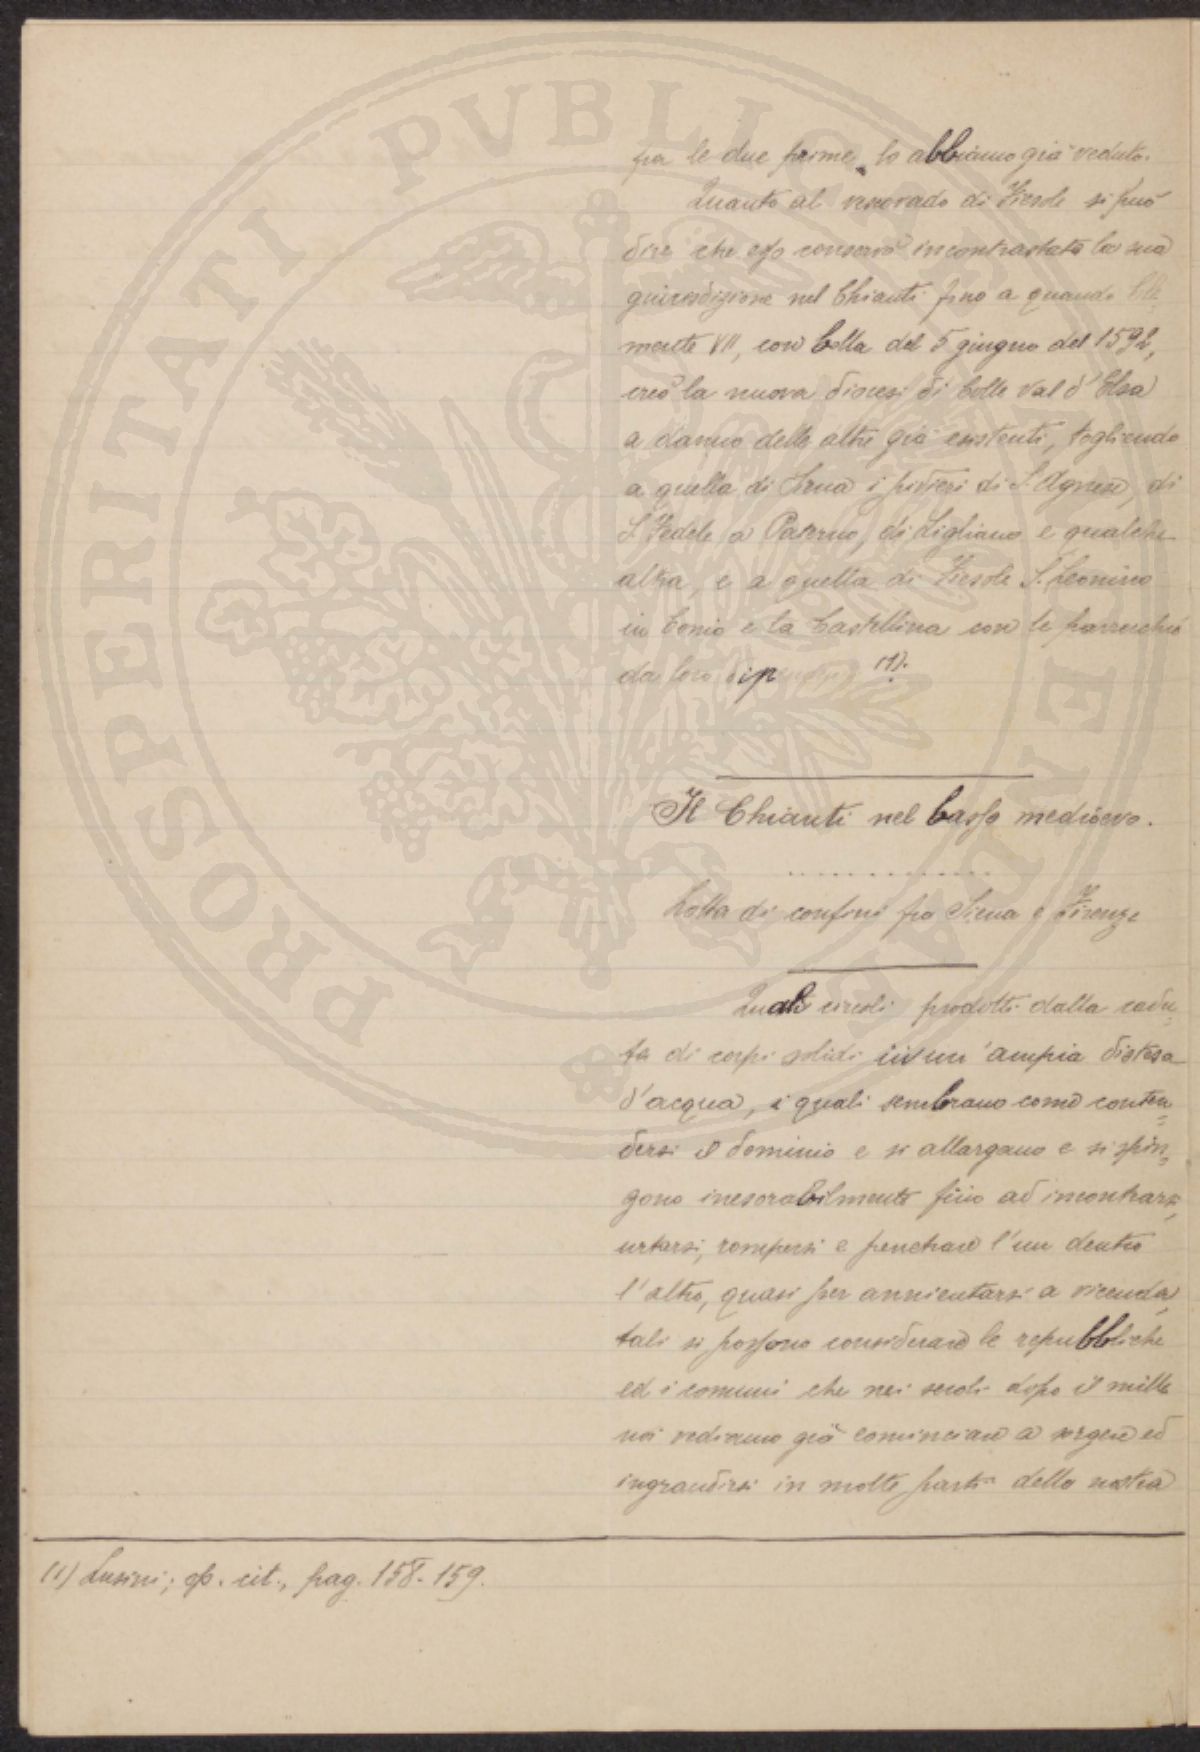 fra le due prime, lo abbiamo già veduto.
Quanto al vescovado di Fiesole si può
dire che esso conservò incontrastata la sua
giurisdizione nel Chianti fino a quando Cle-
mente VII, con bolla del 5 giugno del 1592,
creò la nuova diocesi di Colle Val d'Elsa
a danno delle altre già esistenti, togliendo
a quella di Siena i pivieri di S. Agnese, di
S. Fedele a Paterno, di Ligliano e qualche
altra, e a quella di Fiesole S. Leonino
in Conio e la Castellina con le parrocchie
da loro dipendenti (1).
Il Chianti nel basso medioevo.
. . . . . . . . . . . . .
Lotta di confini fra Siena e Firenze
Quali circoli prodotti dalla cadu-
ta di corpi solidi in un'ampia distesa
d'acqua, i quali sembrano come conten-
dersi il dominio e si allargano e si spin-
gono inesorabilmente fino ad incontrarsi,
urtarsi, rompersi e penetrare l'un dentro
l'altro, quasi per annientarsi a vicenda,
tali si possono considerare le repubbliche
ed i comuni che nei secoli dopo il mille
noi vediamo già cominciare a sorgere ed
ingrandirsi in molte parti della nostra
(1) Lusini; op. cit., pag. 158-159.
PROSPERITATI PUBLICAE AUGENDAE